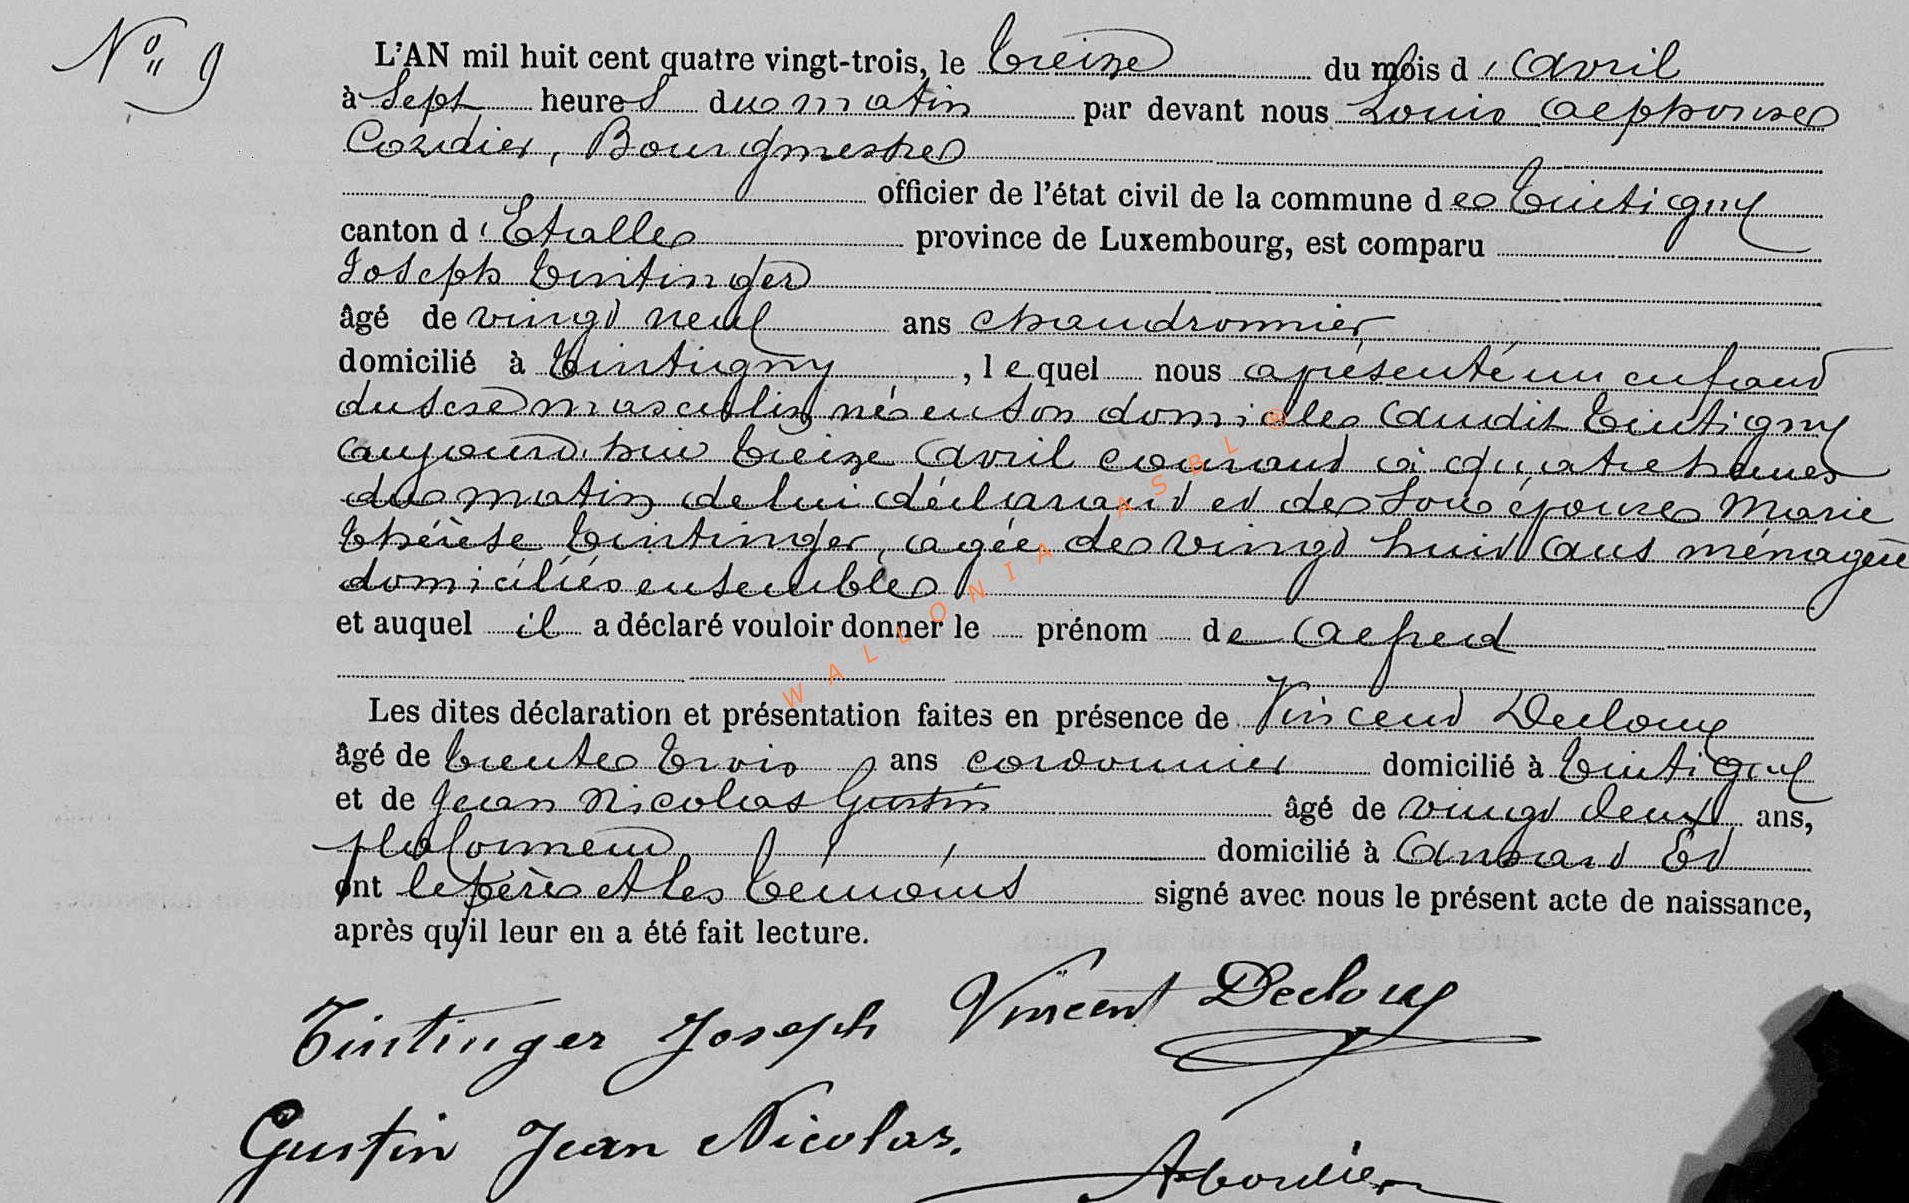 N° 9
L'AN mil huit cent quatre vingt-trois, le treize du mois d'Avril
à Sept heures du matin par devant nous Louis Alphonse
Cordier, Bourgmestre
officier de l'état civil de la commune de Tintigny
canton d'Etalle province de Luxembourg, est comparu
Joseph Tintinger
âgé de vingt neuf ans chaudronnier
domicilié à Tintigny, lequel nous a présenté un enfant
du sexe masculin né en son domicile audit Tintigny
aujourd'hui treize Avril courant à quatre heures
du matin de lui déclarant et de Son épouse Marie
Thérèse Tintinger, agée de vingt huit ans ménagère
domiciliés ensemble
et auquel il a déclaré vouloir donner le prénom de Alfred
Les dites déclaration et présentation faites en présence de Vincent Decloux
âgé de trente trois ans cordonnier domicilié à Tintigny
et de Jean Nicolas Gustin âgé de vingt deux ans,
plafonneur domicilié à Ansart Et
ont le père et les témoins signé avec nous le présent acte de naissance,
après qu'il leur en a été fait lecture.
Tintinger Joseph Vincent Decloux
Gustin Jean Nicolas.
WALLONIA ASBL ®